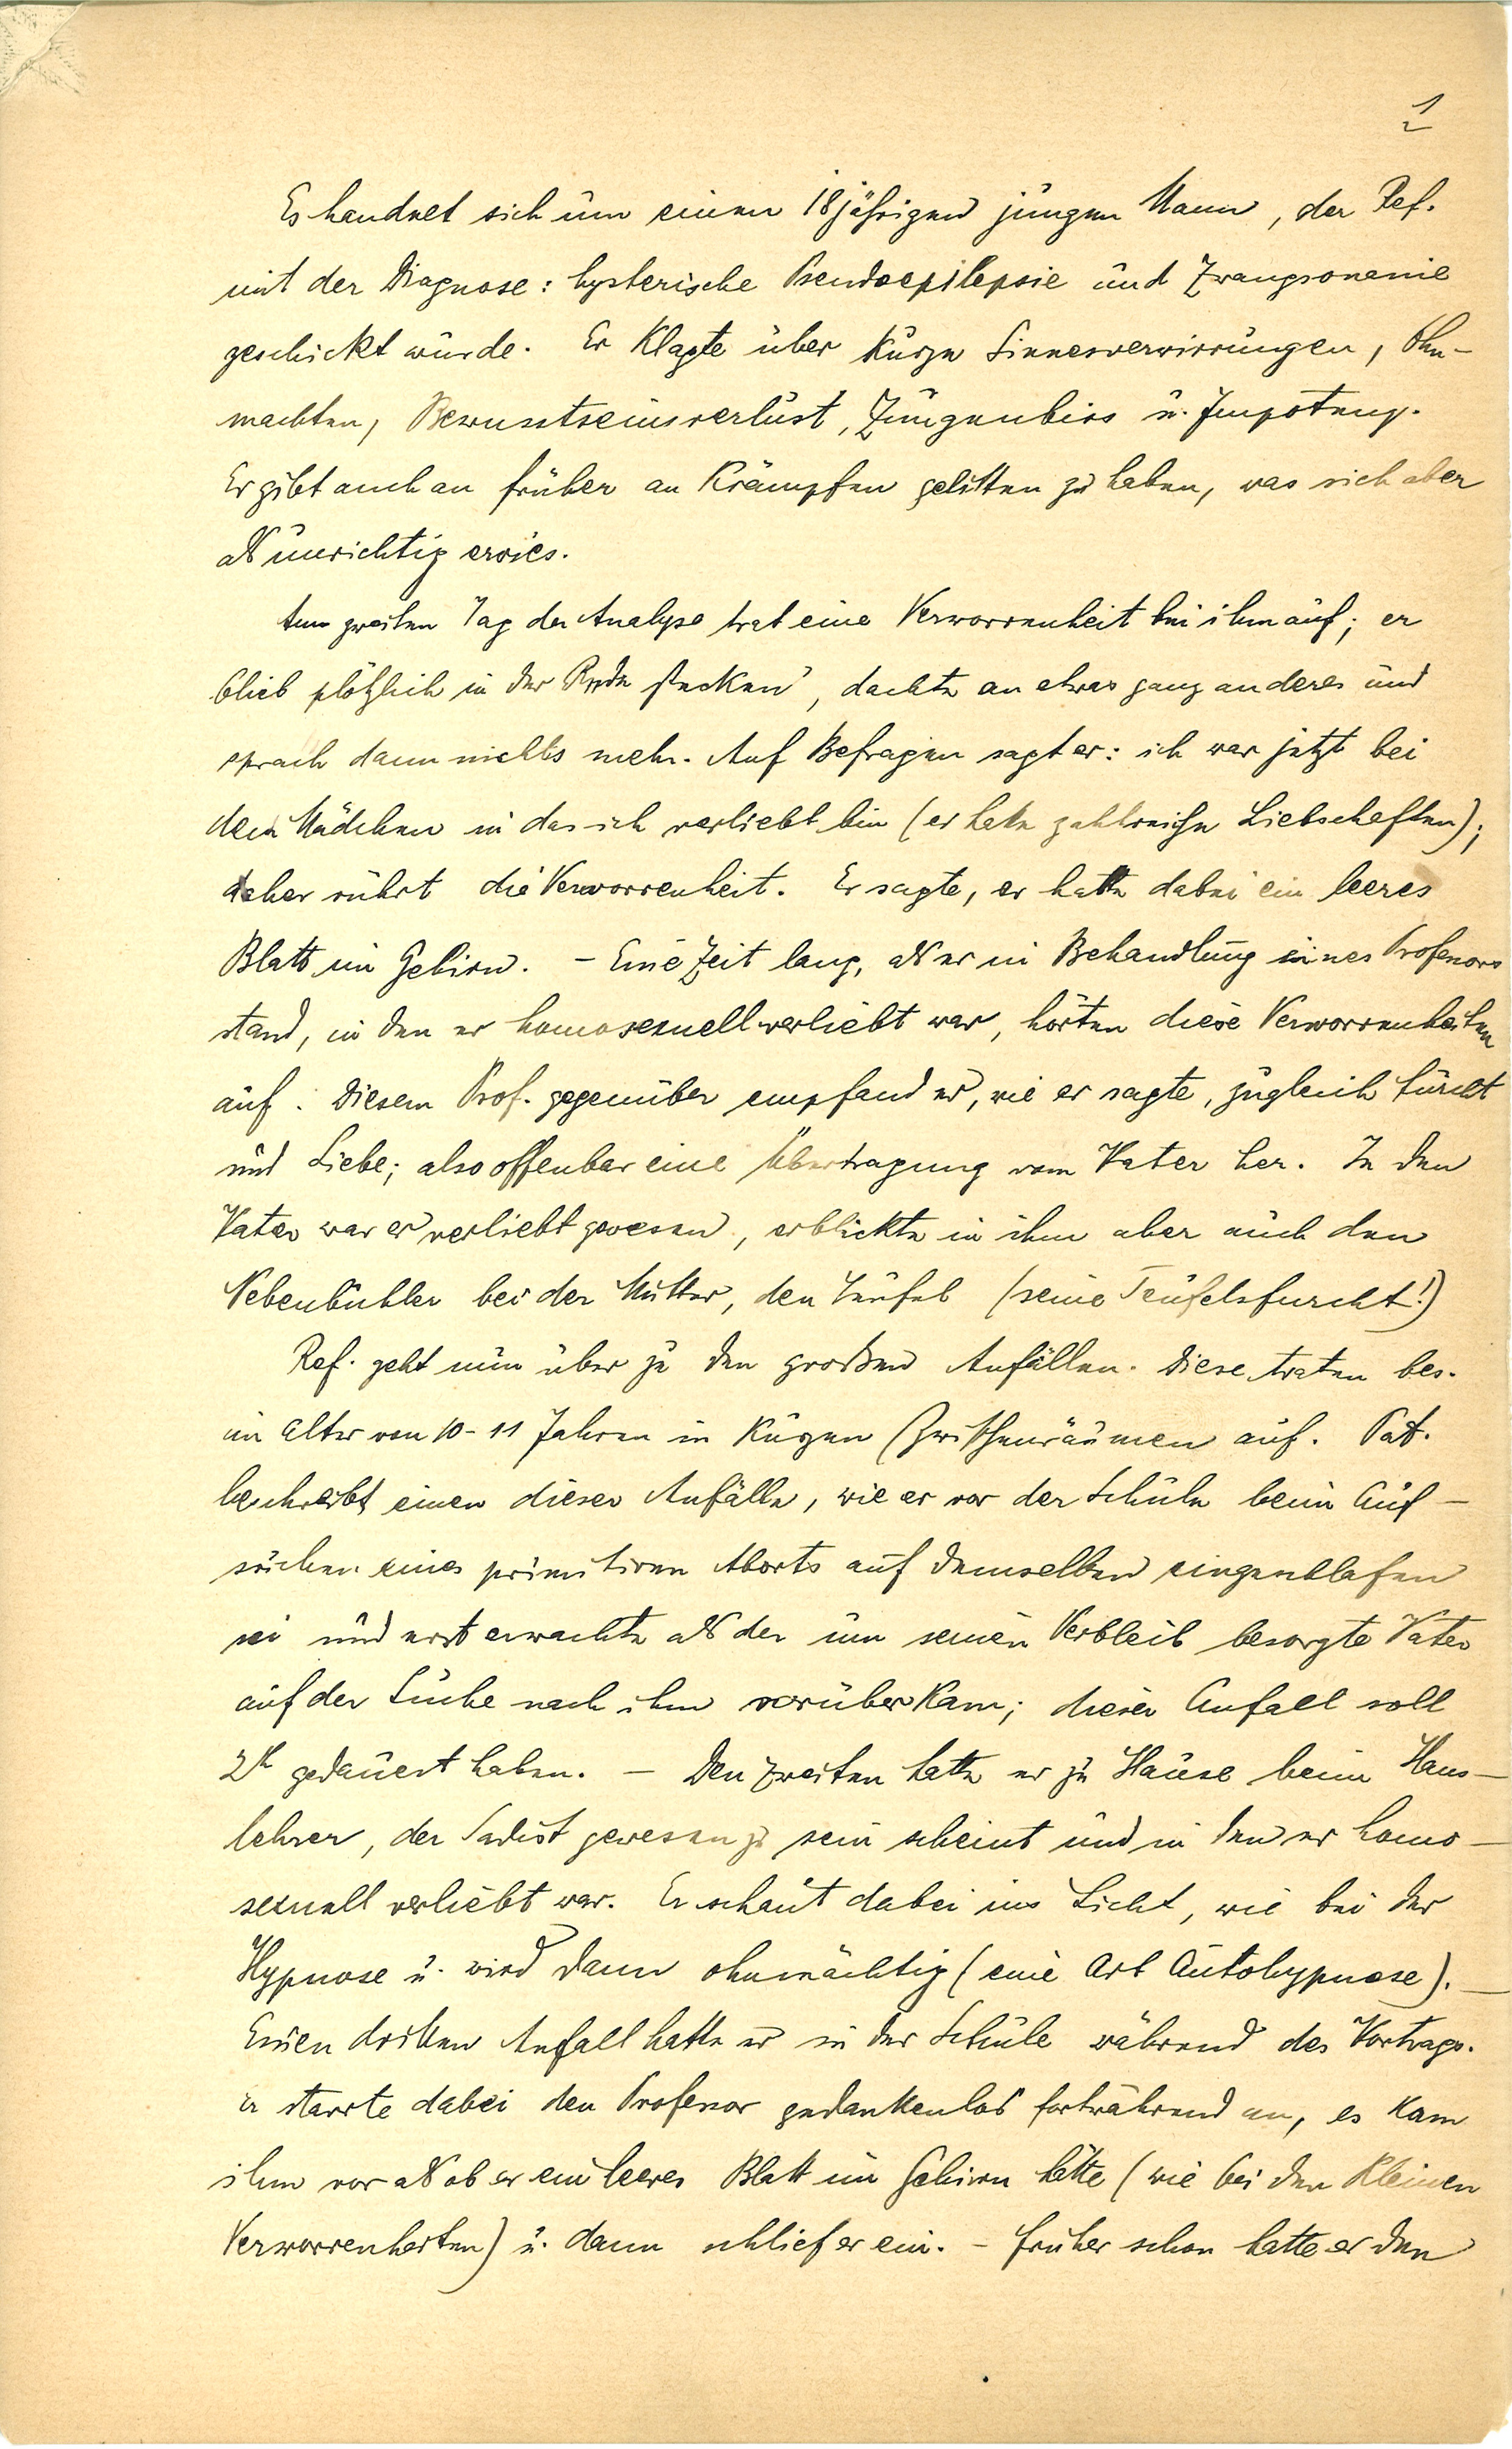 1
Es handelt sich um einen 18jährigen jungen Mann, der Ref.
mit der Diagnose: hysterische Pseudoepilepsie und Zwangsonanie
geschickt wurde. Er klagte über kurze Sinnesverwirrungen, Ohn-
machten, Bewusstseinsverlust, Zungenbiss u. Impotenz.
Er gibt auch an früher an Krämpfen gelitten zu haben, was sich aber
als unrichtig erwies.
Am zweiten Tag der Analyse trat eine Verworrenheit bei ihm auf; er
blieb plötzlich in der Rede stecken, dachte an etwas ganz anderes und
sprach dann nichts mehr. Auf Befragen sagt er: ich war jetzt bei
dem Mädchen in das ich verliebt bin (er hatte zahlreiche Liebschaften);
daher rührt die Verworrenheit. Er sagte, er hatte dabei ein leeres
Blatt im Gehirn. – Eine Zeit lang, als er in Behandlung eines Professors
stand, in den er homosexuell verliebt war, hörten diese Verworrenheiten
auf. Diesem Prof. gegenüber empfand er, wie er sagte, zugleich Furcht
und Liebe; also offenbar eine Übertragung vom Vater her. In den
Vater war er verliebt gewesen, erblickte in ihm aber auch den
Nebenbuhler bei der Mutter, den Teufel (seine Teufelsfurcht!)
Ref. geht nun über zu den großen Anfällen. Diese traten bes.
im Alter von 10-11 Jahren in kurzen Zwischenräumen auf. Pat.
beschreibt einen dieser Anfälle, wie er vor der Schule beim Auf-
suchen eines primitiven Aborts auf demselben eingeschlafen
sei und erst erwachte als der um seinen Verbleib besorgte Vater
auf der Suche nach ihm vorüberkam; dieser Anfall soll
2h gedauert haben. – Den zweiten hatte er zu Hause beim Haus-
lehrer, der Sadist gewesen zu sein scheint und in den er homo-
sexuell verliebt war. Er schaut dabei ins Licht, wie bei der
Hypnose u. wird dann ohnmächtig (eine Art Autohypnose). –
Einen dritten Anfall hatte er in der Schule während des Vortrags.
er starrte dabei den Professor gedankenlos fortwährend an, es kam
ihm vor als ob er ein leeres Blatt im Gehirn hätte (wie bei den kleinen
Verworrenheiten) u. dann schlief er ein. – Früher schon hatte er den